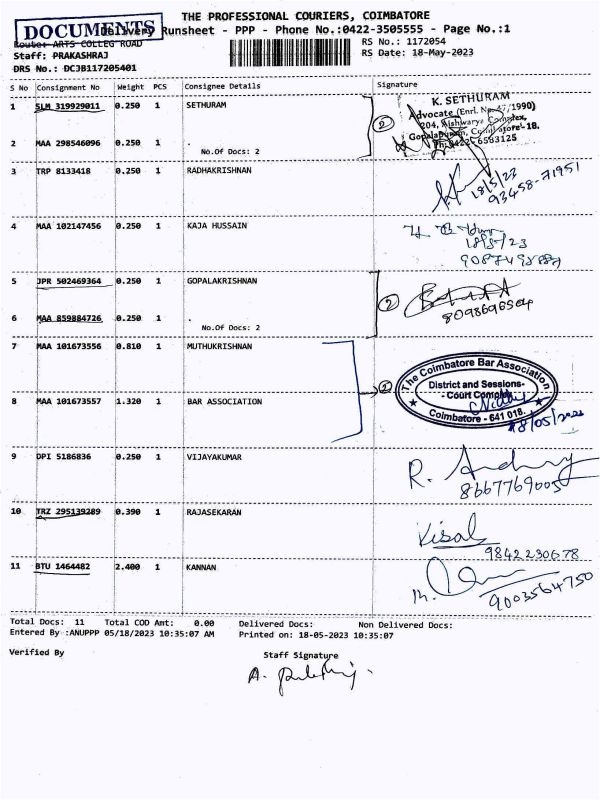 THE PROFESSIONAL COURIERS, COIMBATORE
DOCUMENTS
Delivery Runsheet - PPP - Phone No.:0422-3505555 - Page No.:1
Route: ARTS COLLEG ROAD
RS No.: 1172054
Staff: PRAKASHRAJ
RS Date: 18-May-2023
DRS No.: DCJB117205401
S No Consignment No Weight PCS Consignee Details Signature
1 SLM 319929011 0.250 1 SETHURAM
2
K. SETHURAM
Advocate (Enrl. No. 47/1990)
204, Aishwarya Complex,
Gopalapuram, Coimbatore-18.
Ph: 0422-6583125
2 MAA 298546096 0.250 1 .
No.Of Docs: 2
3 TRP 8133418 0.250 1 RADHAKRISHNAN
18/5/23
93458-71951
4 MAA 102147456 0.250 1 KAJA HUSSAIN
18/5/23
5 JPR 502469364 0.250 1 GOPALAKRISHNAN
2
8098696504
6 MAA 859884726 0.250 1 .
No.Of Docs: 2
7 MAA 101673556 0.810 1 MUTHUKRISHNAN
2
The Coimbatore Bar Association
District and Sessions-
- Court Complex
Coimbatore - 641 018.
18/05/2023
8 MAA 101673557 1.320 1 BAR ASSOCIATION
9 DPI 5186836 0.250 1 VIJAYAKUMAR
R.
8667769005
10 TRZ 295139289 0.390 1 RAJASEKARAN
Visal
9842230678
11 BTU 1464482 2.400 1 KANNAN
M.
9003564750
Total Docs: 11 Total COD Amt: 0.00 Delivered Docs: Non Delivered Docs:
Entered By :ANUPPP 05/18/2023 10:35:07 AM Printed on: 18-05-2023 10:35:07
Verified By Staff Signature
A.